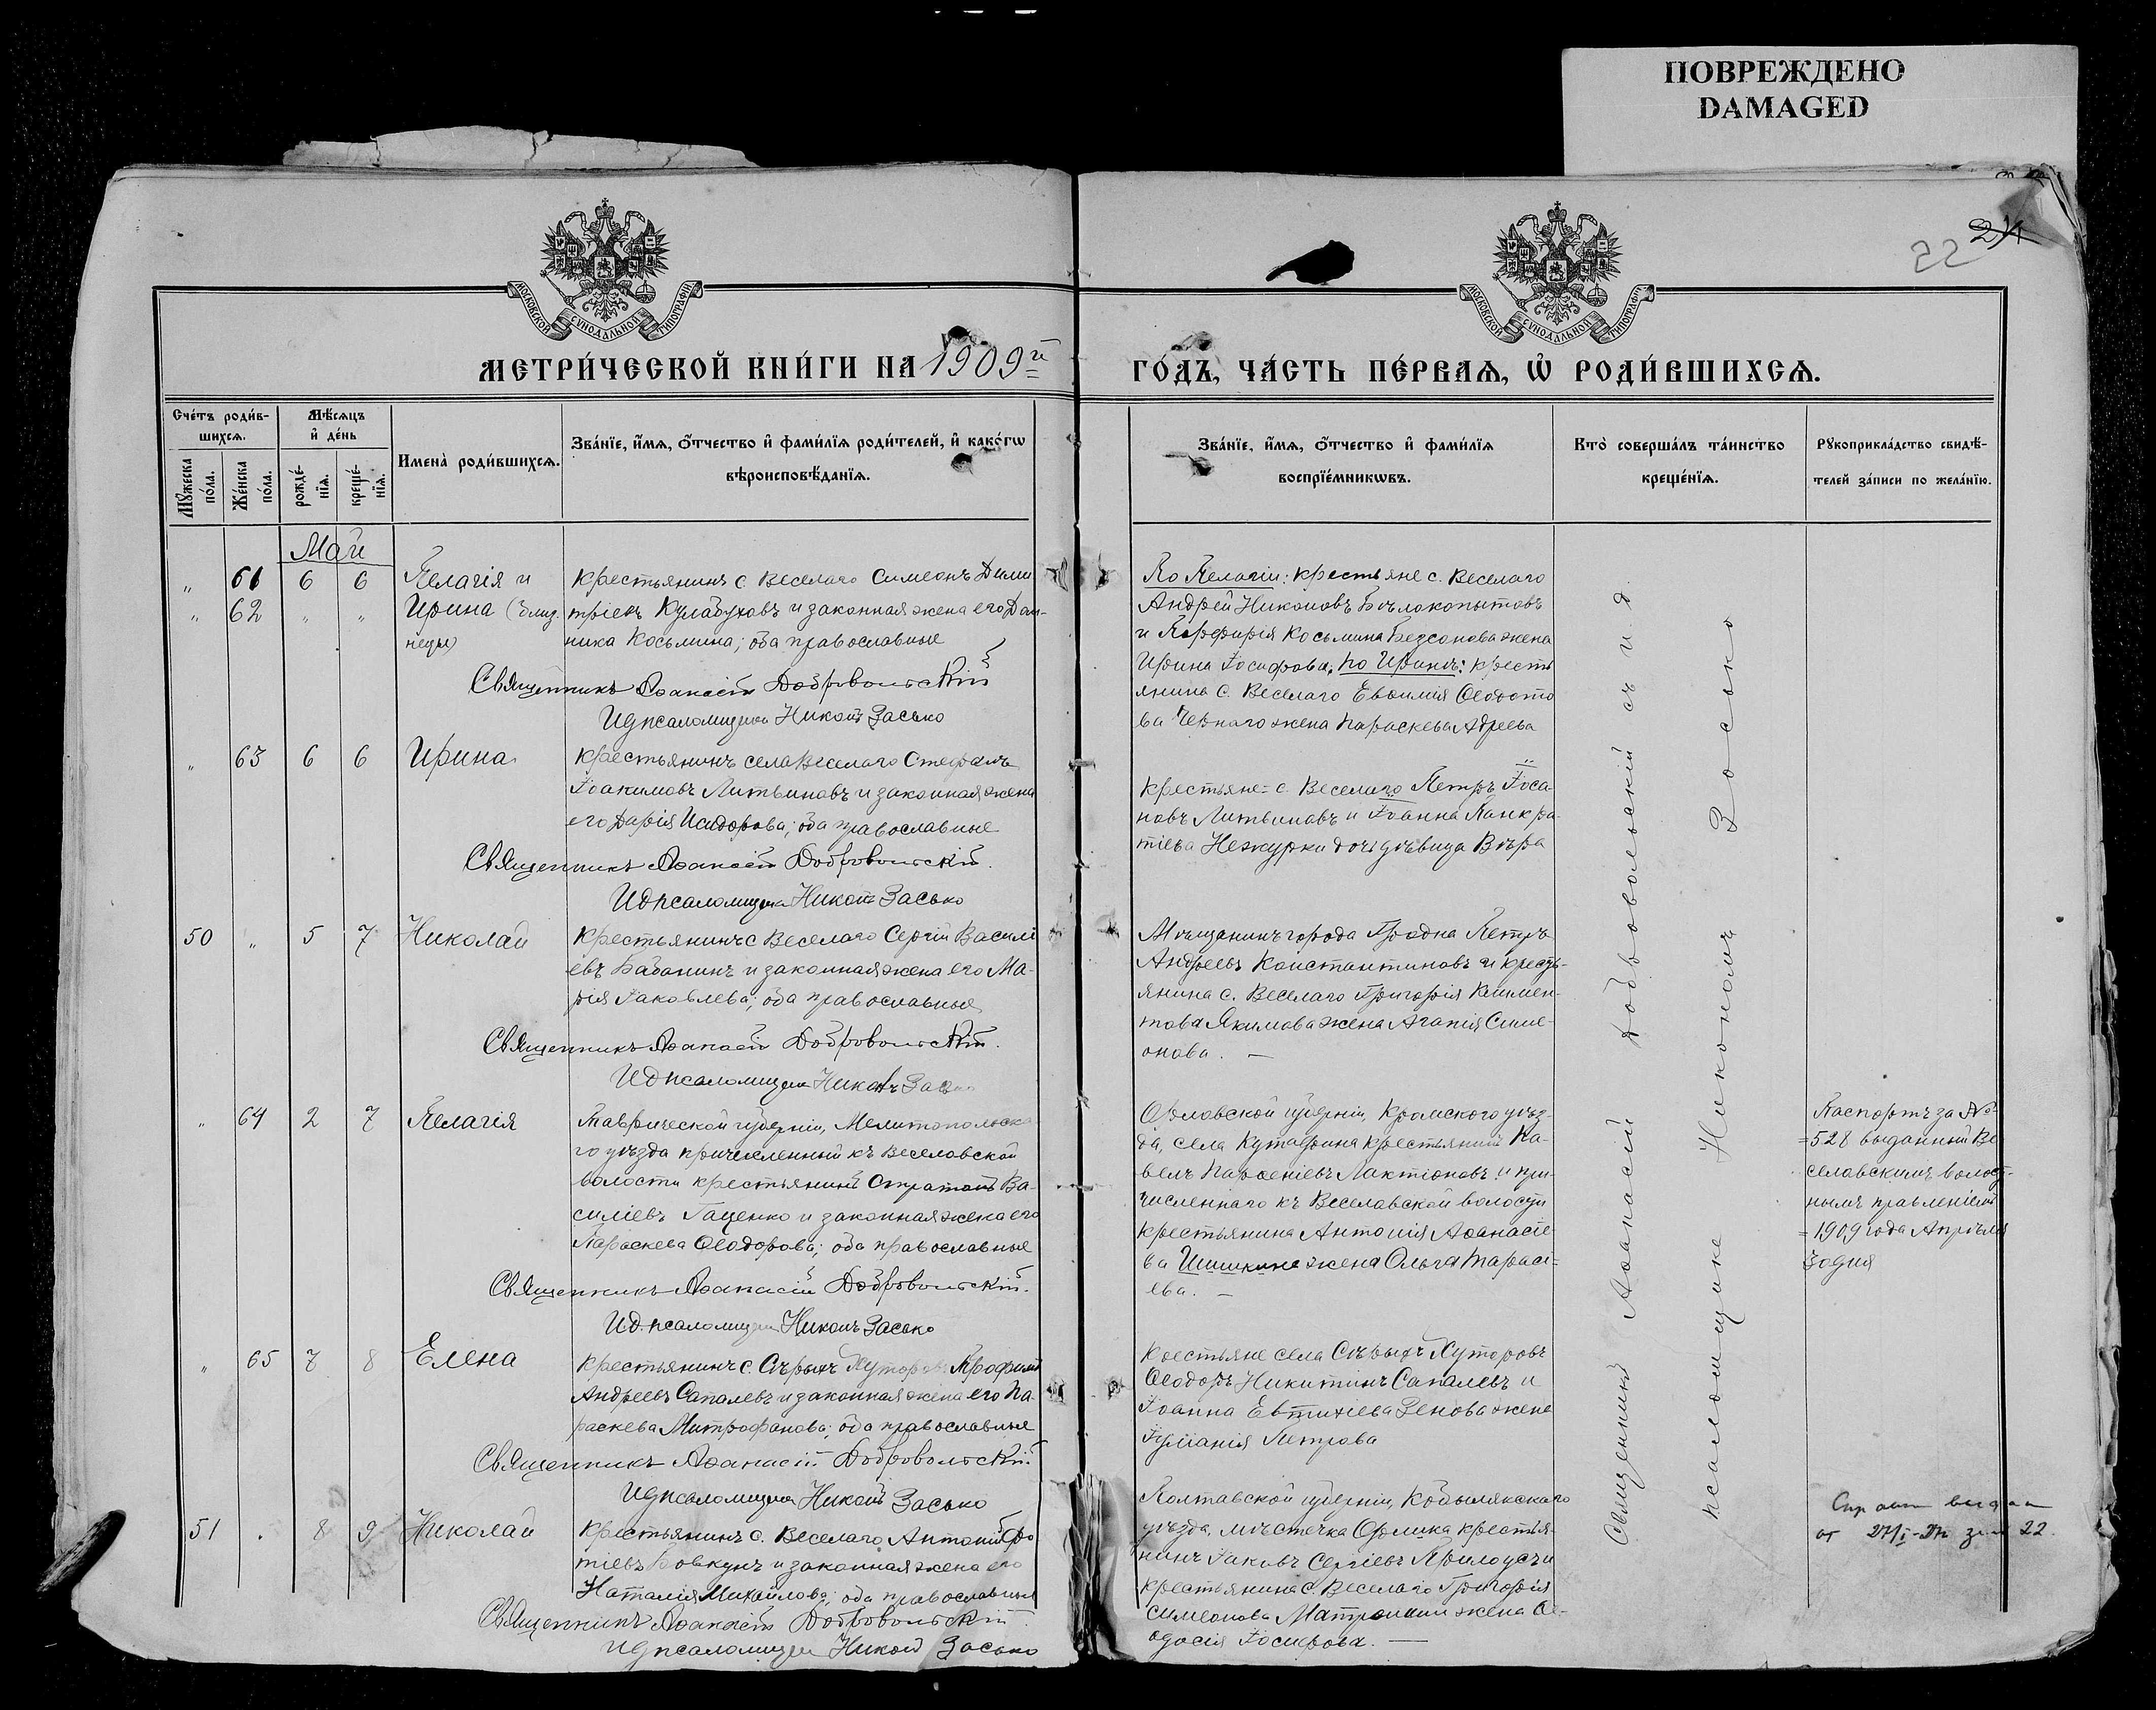 ПОВРЕЖДЕНО
DAMAGED
24
22
МОСКОВСКОЙ СѴНОДАЛЬНОЙ ТИПОГРАФІИ
МОСКОВСКОЙ СѴНОДАЛЬНОЙ ТИПОГРАФІИ
МЕТРИ́ЧЕСКОЙ КНИ́ГИ НА 1909й
ГО́ДЪ, ЧА́СТЬ ПЕ́РВАѦ, Ѡ҆ РОДИ́ВШИХСѦ.
Сче́тъ роди́в-
шихсѧ.
Мꙋ́жеска по́ла.
Же́нска по́ла.
Мѣ́сѧцъ
и҆ де́нь
рожде́-
нїѧ.
креще́-
нїѧ.
Имена̀ роди́вшихсѧ.
Зва́нїе, и҆́мѧ, ѻ҆́тчество и҆ фами́лїѧ роди́телей, и҆ како́гѡ
вѣроисповѣ́данїѧ.
Зва́нїе, и҆́мѧ, ѻ҆́тчество и҆ фами́лїѧ
воспрїе́мникѡвъ.
Кто̀ соверша́лъ та́инство
креще́нїѧ.
Рꙋкоприкла́дство свидѣ́-
телей за́писи по жела́нїю.
Май
„ 61 6 6 Пелагія и
„ 62 „ „ Ирина (близ-
нецы)
Крестьянинъ с. Веселаго Симеонъ Дими
тріевъ Кулабуховъ и законная жена его Дом-
ника Косьмина; оба православные
Священникъ Аѳанасій Добровольскій
И д псаломщика Никонъ Засько
По Пелагіи: крестьяне с. Веселаго
Андрей Никоновъ Бѣлокопытовъ
и Порфирія Косьмина Безсонова жена
Ирина Іосифова. По Иринѣ: кресть
янина с. Веселаго Евѳимія Ѳеодото
ва Чернаго жена Параскева Адреева
„ 63 6 6 Ирина
Крестьянинъ села Веселаго Стефанъ
Іоакимовъ Литвиновъ и законная жена
его Дарія Исидорова; оба православные
Священникъ Аѳанасій Добровольскій.
И д псаломщика Никонъ Засько
Крестьяне с. Веселаго Петръ Іоса
новъ Литвиновъ и Іоанна Панкра
тіева Нежурки дочь дѣвица Вѣра
50 „ 5 7 Николай
Крестьянинъ с Веселаго Сергій Василі
евъ Бабанинъ и законная жена его Ма-
рія Іаковлева; оба православные
Священникъ Аѳанасій Добровольскій.
И д псаломщика Никонъ Засько
Мѣщанинъ города Гродна Петръ
Андреевъ Константиновъ и кресть-
янина с. Веселаго Григорія Климен-
това Якимова жена Агапія Симе-
онова. —
„ 64 2 7 Пелагія
Таврической губерніи, Мелитопольска
го уѣзда причисленный къ Веселовской
волости крестьянинъ Стратонъ Ва-
силіевъ Гаценко и законная жена его
Параскева Ѳеодорова; оба православные
Священникъ Аѳанасій Добровольскій.
И.д. псаломщика Никонъ Засько
Орловской губерніи, Кромского уѣз-
да, села Кутафина крестьянинъ Па-
велъ Парѳеніевъ Лактіоновъ и при-
численнаго къ Веселовской волости
крестьянина Антонія Аѳанасіе-
ва Шишкина жена Ольга Тарасі-
ева. —
Паспортъ за №
528 выданный Ве
селовскимъ волост-
нымъ правленіемъ
1909 года Апрѣля
30 дня
„ 65 7 8 Елена
Крестьянинъ с. Сѣрыхъ Хуторовъ Трофимъ
Андреевъ Сапалевъ и законная жена его Па
раскева Митрофанова; оба православные
Священникъ Аѳанасій Добровольскій.
И д псаломщика Никонъ Засько
Крестьяне села Сѣрыхъ Хуторовъ
Ѳеодоръ Никитинъ Сапалевъ и
Іоанна Евтихіева Зенова жена
Іуліанія Петрова
51 „ 8 9 Николай
Крестьянинъ с. Веселаго Антоній Тро
тіевъ Бовкунъ и законная жена его
Наталія Михайлова; оба православные
Священникъ Аѳанасій Добровольскій
И д псаломщика Никонъ Засько
Полтавской губерніи, Кобылякскаго
уѣзда, мѣстечка Орлика крестья-
нинъ Іаковъ Сергіевъ Прилоусъ и
крестьянина с. Веселаго Григорія
Симеонова Матронина жена Ѳе-
одосія Іосифова. —
от 27/I за 22.
Священникъ Аѳанасій Добровольскій съ и. д.
псаломщика Никономъ Засько